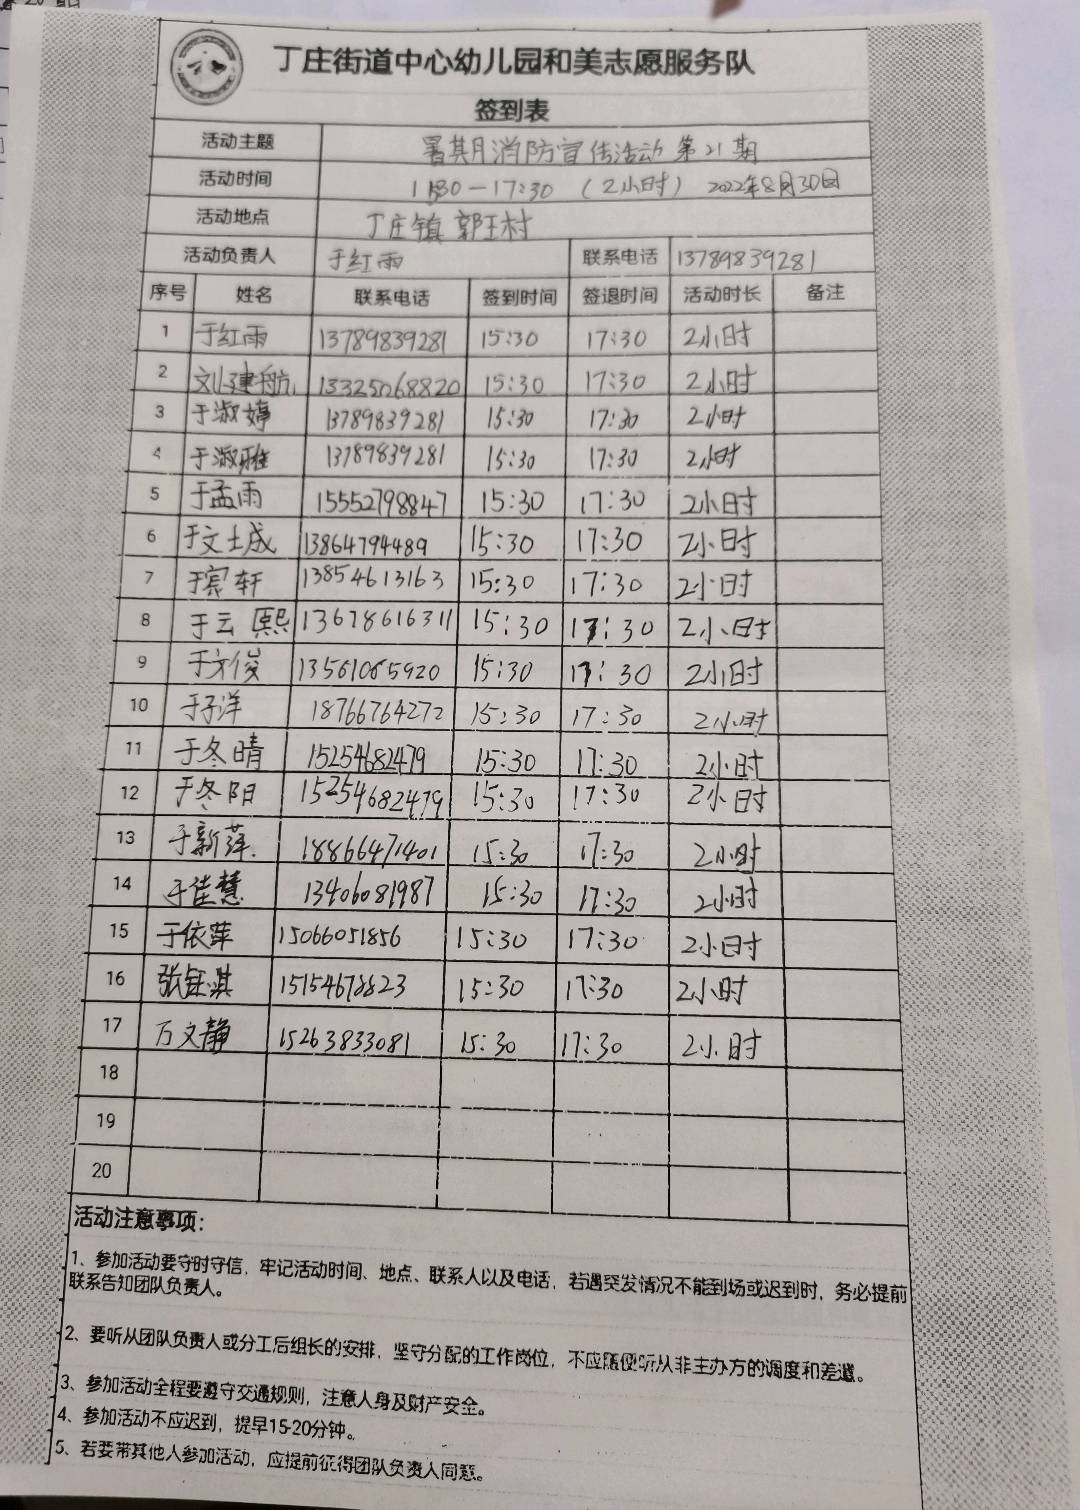 丁庄街道中心幼儿园和美志愿服务队
签到表
活动主题 暑期消防宣传活动 第21期
活动时间 15:30-17:30 (2小时) 2022年8月30日
活动地点 丁庄镇 郭王村
活动负责人 于红雨 联系电话 13789839281
序号 姓名 联系电话 签到时间 签退时间 活动时长 备注
1 于红雨 13789839281 15:30 17:30 2小时
2 刘建航 13325068820 15:30 17:30 2小时
3 于淑婷 13789839281 15:30 17:30 2小时
4 于淑雅 13789839281 15:30 17:30 2小时
5 于孟雨 15552798847 15:30 17:30 2小时
6 于文士成 13864794489 15:30 17:30 2小时
7 于宾轩 13854613163 15:30 17:30 2小时
8 于云熙 13678616311 15:30 17:30 2小时
9 于文俊 13561065920 15:30 17:30 2小时
10 于子洋 18766764272 15:30 17:30 2小时
11 于冬晴 15254682479 15:30 17:30 2小时
12 于冬阳 15254682479 15:30 17:30 2小时
13 于新萍 18866471401 15:30 17:30 2小时
14 于佳慧 13406081987 15:30 17:30 2小时
15 于依萍 15066051856 15:30 17:30 2小时
16 张钰淇 15154678823 15:30 17:30 2小时
17 万文静 15263833081 15:30 17:30 2小时
18
19
20
活动注意事项：
1、参加活动要守时守信，牢记活动时间、地点、联系人以及电话，若遇突发情况不能到场或迟到时，务必提前
联系告知团队负责人。
2、要听从团队负责人或分工后组长的安排，坚守分配的工作岗位，不应随便听从非主办方的调度和差遣。
3、参加活动全程要遵守交通规则，注意人身及财产安全。
4、参加活动不应迟到，提早15-20分钟。
5、若要带其他人参加活动，应提前征得团队负责人同意。